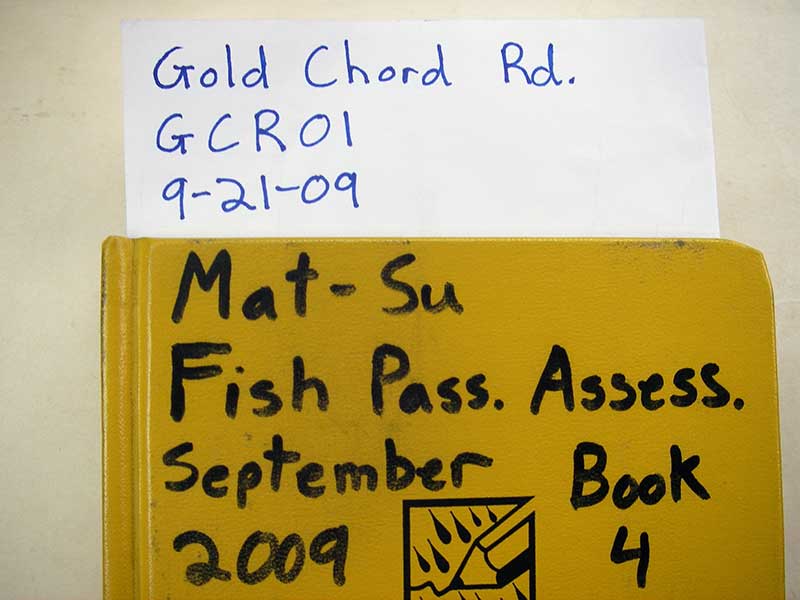 Gold Chord Rd.
GCR01
9-21-09
Mat-Su
Fish Pass. Assess.
September Book
2009 4